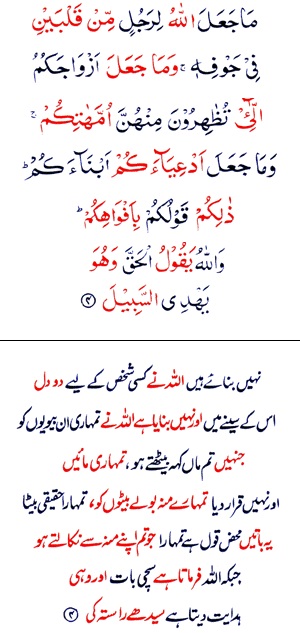 مَا جَعَلَ اللّٰهُ لِرَجُلٍ مِّنْ قَلْبَيْنِ
فِيْ جَوْفِهٖ ۚ وَمَا جَعَلَ اَزْوَاجَكُمُ
الّٰٓـِٔيْ تُظٰهِرُوْنَ مِنْهُنَّ اُمَّهٰتِكُمْ ۚ
وَمَا جَعَلَ اَدْعِيَآءَكُمْ اَبْنَآءَكُمْ ؕ
ذٰلِكُمْ قَوْلُكُمْ بِاَفْوَاهِكُمْ ؕ
وَاللّٰهُ يَقُوْلُ الْحَقَّ وَهُوَ
يَهْدِي السَّبِيْلَ ۴
نہیں بنائے ہیں اللہ نے کسی شخص کے لیے دو دل
اس کے سینے میں اور نہیں بنایا ہے اللہ نے تمہاری ان بیویوں کو
جنہیں تم ماں کہہ بیٹھتے ہو، تمہاری مائیں
اور نہیں قرار دیا تمہارے منہ بولے بیٹوں کو، تمہارا حقیقی بیٹا
یہ باتیں محض قول ہے تمہارا جو تم اپنے منہ سے نکالتے ہو
جبکہ اللہ فرماتا ہے سچی بات اور وہی
ہدایت دیتا ہے سیدھے راستہ کی ۴